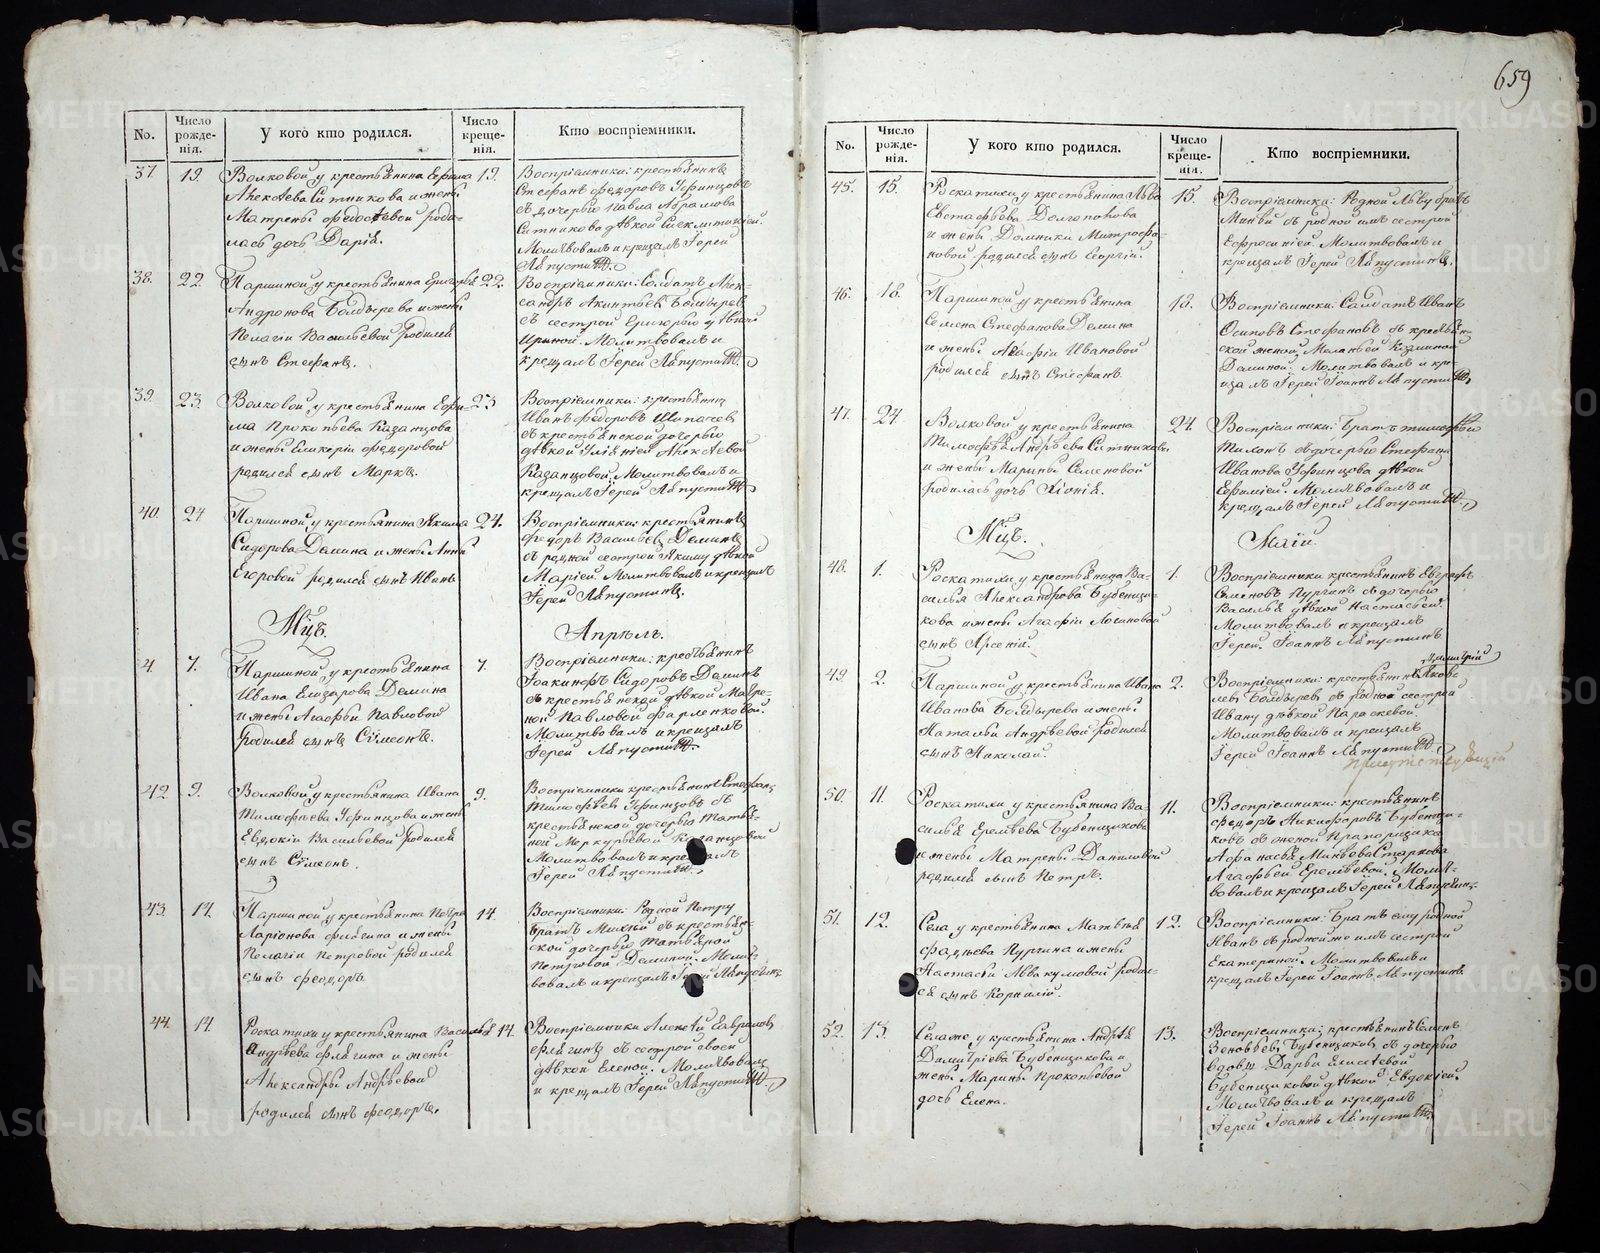 659
No.
Число рожде-нія.
У кого кто родился.
Число креще-нія.
Кто воспріемники.
37.
19.
Волковой, у крестьянина Ефима
Алексѣева Ситникова и жены
Матрены Федосѣевой роди-
лась дочь Дарія.
19.
Воспріемники: крестьянинъ
Стефанъ Федоровъ Уфинцовъ
съ дочерью Павла Абрамова
Ситникова дѣвкой
Молитвовалъ и крещалъ Іерей
Лѣпустинъ.
38.
22
Паршиной, у крестьянина Григорья
Андронова Болдырева и жены
Пелагіи Васильевой родился
сынъ Стефанъ.
22.
Воспріемники: Солдатъ Алек-
сандръ Акинтьевъ Болдыревъ
съ сестрой Григорью дѣвкой
Ириной. Молитвовалъ и
крещалъ Іерей Лѣпустинъ.
39.
23.
Волковой, у крестьянина Ефи-
ма Прокопьева Казанцова
и жены Гликеріи Федоровой
родился сынъ Маркъ.
23
Воспріемники: крестьянинъ
Иванъ Федоровъ Шипачевъ
съ крестьянской дочерью
дѣвкой Уліяніей Алексѣевой
Казанцовой. Молитвовалъ и
крещалъ Іерей Лѣпустинъ.
40.
24
Паршиной, у крестьянина Якима
Сидорова Демина и жены Анны
Егоровой родился сынъ Иванъ
24.
Воспріемники: крестьянинъ
Федоръ Васильевъ Деминъ
съ родной сестрой Якиму дѣвкой
Маріей. Молитвовалъ и крещалъ
Іерей Лѣпустинъ.
Мцъ.
Апрѣль.
4
7.
Паршиной, у крестьянина
Ивана Елизарова Демина
и жены Агафьи Павловой
родился сынъ Сѵмеонъ.
7.
Воспріемники: крестьянинъ
Іоакинфъ Сидоровъ Деминъ
съ крестьянской дѣвкой Мавро-
ной Павловой Фарленковой.
Молитвовалъ и крещалъ
Іерей Лѣпустинъ.
42.
9.
Волковой, у крестьянина Ивана
Тимофеева Уфинцова и жены
Евдокіи Васильевой родился
сынъ Сѵмеонъ.
9.
Воспріемники крестьянинъ Стефанъ
Тимофѣевъ Уфинцовъ съ
крестьянской дочерью Татья-
ной Меркурьевой Казанцовой
Молитвовалъ и крещалъ
Іерей Лѣпустинъ.
43.
14.
Паршиной, у крестьянина Петра
Ларіонова Флягина и жены
Пелагіи Петровой родился
сынъ Федоръ
14.
Воспріемники: Родной Петру
братъ Михѣй съ крестьян-
ской дочерью Татьяной
Петровой Деминой. Молит-
вовалъ и крещалъ Іерей Лѣпустинъ
44.
14.
Роскатихи, у крестьянина Василья
Андрѣева Флягина и жены
Александры Андрѣевой
родился сынъ Федоръ.
14.
Воспріемники Алексѣй Гавриловъ
Флягинъ съ сестрой своей
дѣвкой Еленой. Молитвовалъ
и крещалъ Іерей Лѣпустинъ
No.
Число рожде-нія.
У кого кто родился.
Число креще-нія.
Кто воспріемники.
45.
15.
Роскатихи, у крестьянина Льва
Евстафьева Долгополова
и жены Домники Митрофа-
новой родился сынъ Георгій.
15.
Воспріемники: Родной Льву братъ
Минѣй съ родной имъ сестрой
Ефросиніей. Молитвовалъ и
крещалъ Іерей Лѣпустинъ.
46.
18.
Паршиной у крестьянина
Семена Стефанова Демина
и жены Агафіи Ивановой
родился сынъ Стефанъ
18.
Воспріемники: Салдатъ Иванъ
Осиповъ Стефановъ съ крестьян-
ской женой Меланьей Козминой
Деминой. Молитвовалъ и кре-
щалъ Іерей Іоаннъ Лѣпустинъ
47.
24.
Волковой, у крестьянина
Тимофѣя Андрѣева Ситникова
и жены Марины Семеновой
родилась дочь Хіонія.
24.
Воспріемники: Братъ Тимофѣю
Тихонъ съ дочерью Стефана
Иванова Уфинцова дѣвкой
Ефиміей. Молитвовалъ и
крещалъ Іерей Лѣпустинъ
Мцъ.
Маій.
48.
1.
Роскатихи, у крестьянина Ва-
силья Александрова Бубенщи-
кова и жены Агафіи Логиновой
сынъ Арсеній.
1.
Воспріемники крестьянинъ Евграфъ
Семеновъ Пургинъ съ дочерью
Василья дѣвкой Настасьей.
Молитвовалъ и крещалъ
Іерей Іоаннъ Лѣпустинъ
49.
2.
Паршиной, у крестьянина Ивана
Иванова Болдырева и жены
Натальи Андрѣевой родился
сынъ Николай.
2.
Димитрій
Воспріемники: крестьянинъ Яков-
левъ Болдыревъ съ родной сестрой
Ивану дѣвкой Параскевой.
Молитвовалъ и крещалъ
Іерей Іоаннъ Лѣпустинъ
50.
11.
Роскатихи, у крестьянина Ва-
силья Еремѣева Бубенщикова
и жены Матрены Даниловой
родился сынъ Петръ.
11.
Воспріемники: крестьянинъ
Федоръ Никифоровъ Бубенщи-
ковъ съ женой Прапорщика
Афанасья Минѣева Старкова
Агафьей Еремѣевой. Молит-
вовалъ и крещалъ Іерей Лѣпустинъ.
51.
12.
Села, у крестьянина Матвѣя
Фадѣева Пургина и жены
Настасьи Авакумовой родил-
ся сынъ Корнилій.
12.
Воспріемники: Братъ ему родной
Иванъ съ родной же имъ сестрой
Екатериной. Молитвовалъ и
крещалъ Іерей Іоаннъ Лѣпустинъ.
52.
13.
Села же, у крестьянина Андрѣя
Димитріева Бубенщикова и
жены Марины Прокопьевой
дочь Елена.
13.
Воспріемники: крестьянинъ Семенъ
Зеновьевъ Бубенщиковъ съ дочерью
вдовы Дарьи Елисѣевой
Бубенщиковой дѣвкой Евдокіей.
Молитвовалъ и крещалъ
Іерей Іоаннъ Лѣпустинъ